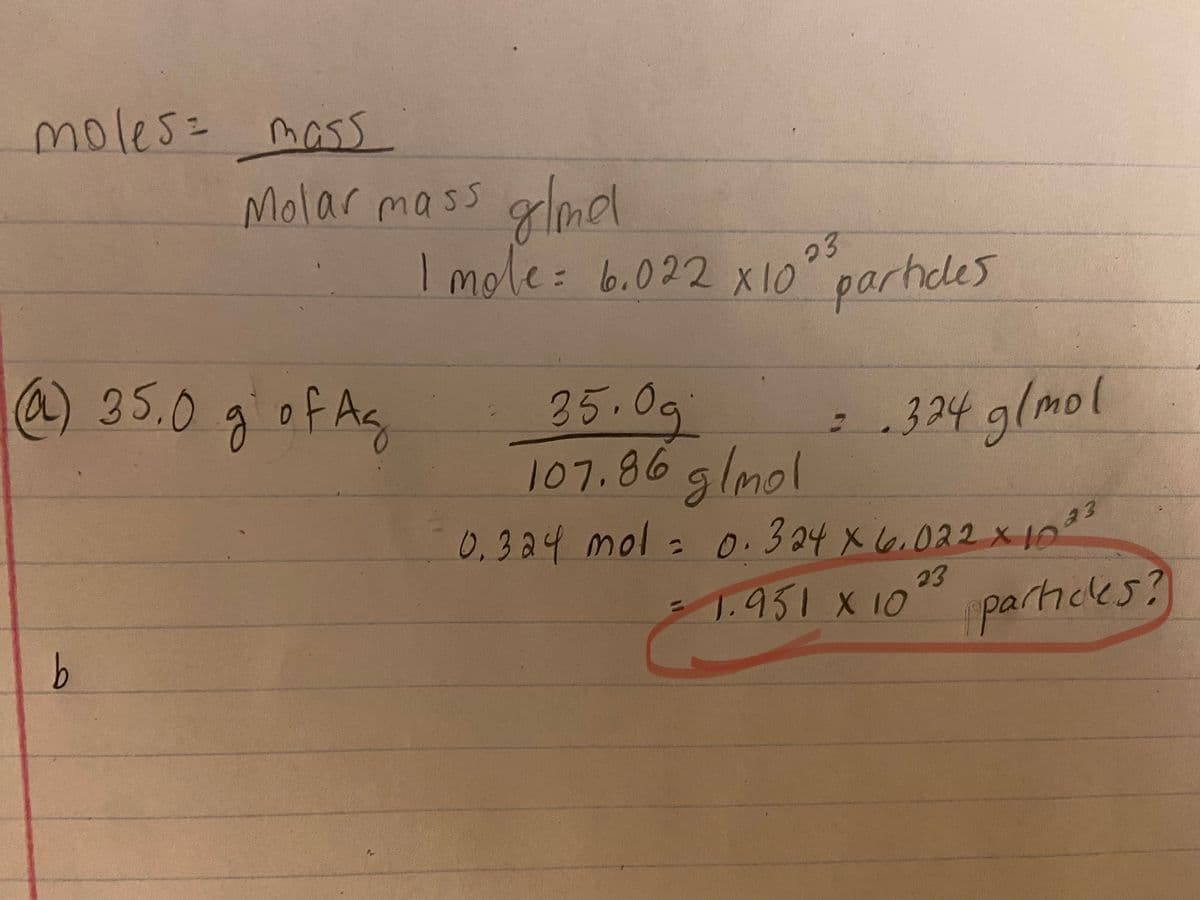 moles = mass
Molar mass g/mol
1 mole = 6.022 x 10²³ particles
(a) 35.0 g of Ag 35.0g = .324 g/mol
107.86 g/mol
0.324 mol = 0.324 x 6.022 x 10²³
= 1.951 x 10²³ particles?
b